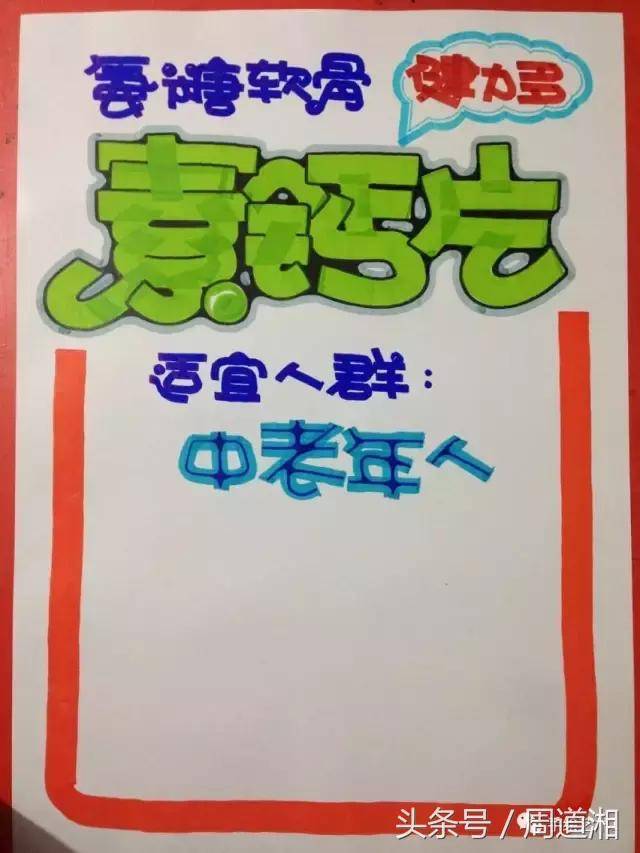 氨糖软骨 健力多
素钙片
适宜人群：
中老年人
头条号 / 周道湘